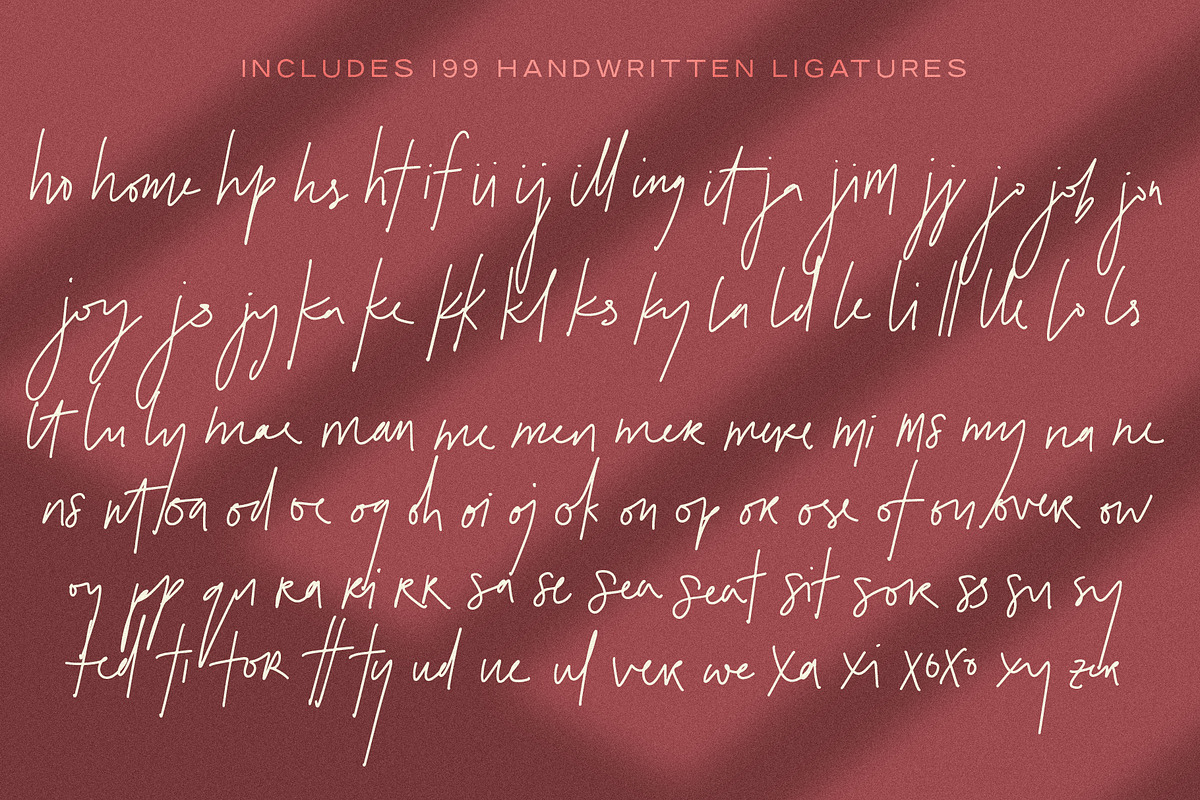 INCLUDES 199 HANDWRITTEN LIGATURES
ho home hp hs ht if ii ij ill ing it ja jim jj jo job jon
joy js jy ka ke kk kl ks ky la ld le li ll lle lo ls
lt lu ly mae man me men mer mere mi ms my na ne
ns nt oa od oe og oh oi oj ok on op or ose ot ou over ow
oy pp qu ra ri rr sa se sea seat sit sor ss su sy
ted ti tor tt ty ud ue ul ver we xa xi xoxo xy zer